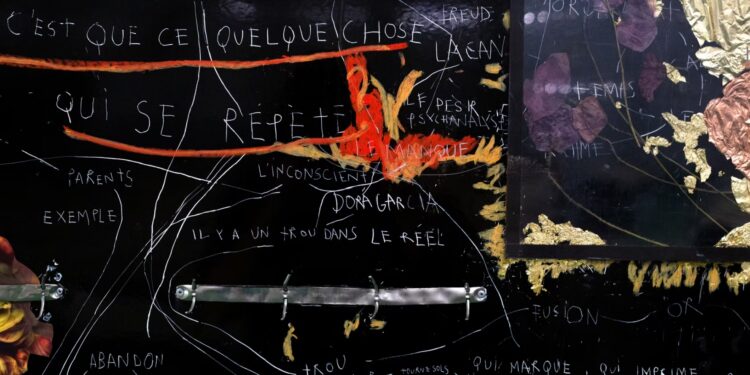 C'EST QUE CE QUELQUE CHOSE
FREUD
LACAN
QUI SE RÉPÈTE
LE DÉSIR
PSYCHANALYSE
LE MANQUE
L'INCONSCIENT
PARENTS
EXEMPLE
DORA GARCIA
IL Y A UN TROU DANS LE RÉEL
TEMPS
FUSION OR
ABANDON
TROU
TOURNESOLS
QUI MARQUE, QUI IMPRIME